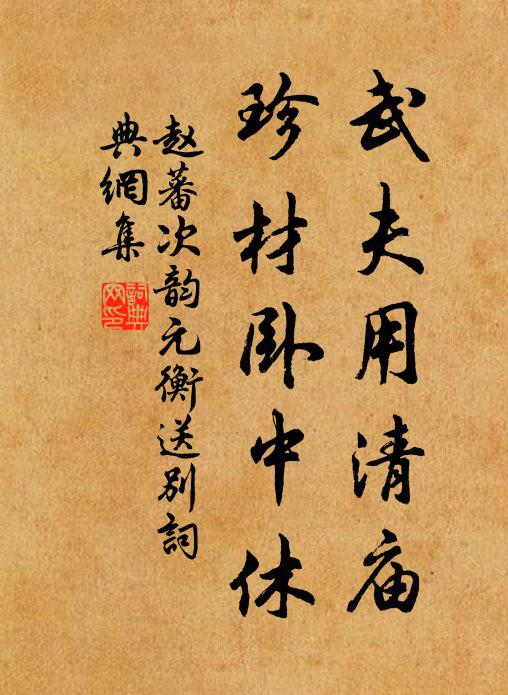 武夫用清庙
珍材卧中休
赵蕃次韵元衡送别詞
典網集
詞典网印